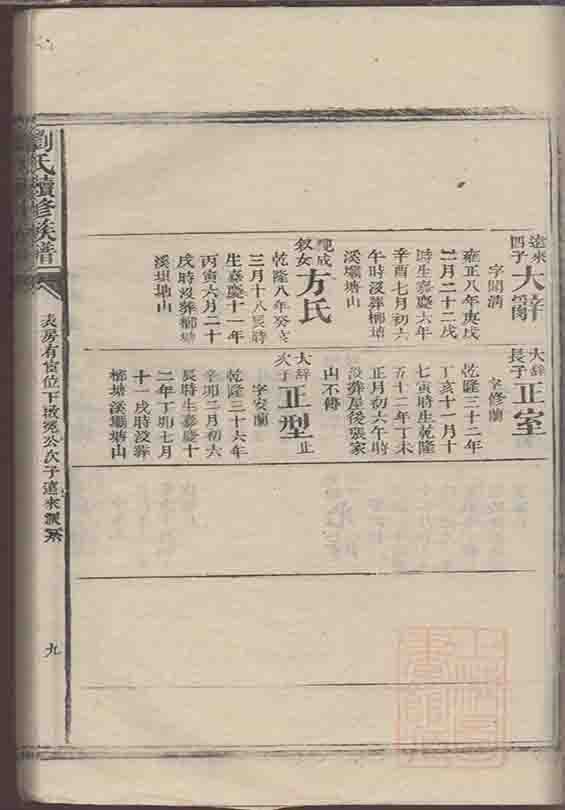 遠來
四子
大辤
字聞清
雍正八年庚戌
二月二十二戌
時生嘉慶六年
辛酉七月初六
午時沒葬櫛塘
溪壩塘山
覲成
叙女
方氏
乾隆八年癸亥
三月十八辰時
生嘉慶十一年
丙寅六月二十
戌時沒葬櫛塘
溪垻塘山
大辤
長子
正室
字修蘭
乾隆三十二年
丁亥十一月十
七寅時生乾隆
五十二年丁未
正月初六午時
沒葬屋後張家
山不傳
大辤
次子
正型
止
字安蘭
乾隆三十六年
辛卯二月初六
辰時生嘉慶十
二年丁卯七月
十一戌時沒葬
櫛塘溪壩塘山
劉氏續修族譜
表房有宙位下
公次子遠來派系
九